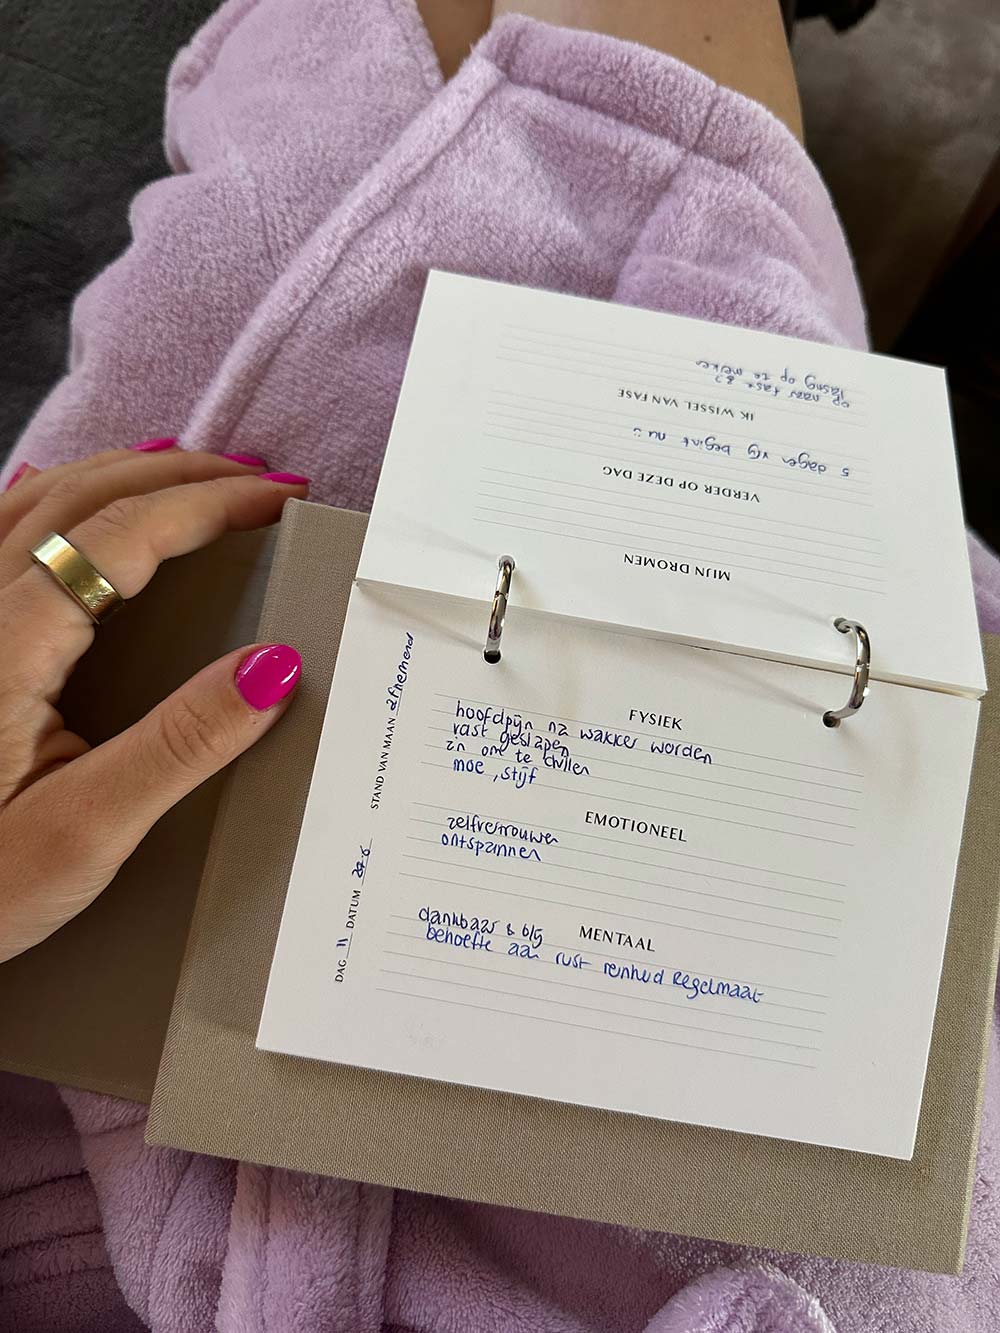 MIJN DROMEN
VERDER OP DEZE DAG
5 dagen vrij begint nu :)
IK WISSEL VAN FASE
op naar fase 3?
lasng op te merken
STAND VAN MAAN afnemend
DAG 11 DATUM
FYSIEK
hoofdpijn na wakker worden
vast geslapen
zin om te chillen
moe, stijf
EMOTIONEEL
zelfvertrouwen
ontspannen
MENTAAL
dankbaar & blij
behoefte aan rust reinheid Regelmaat